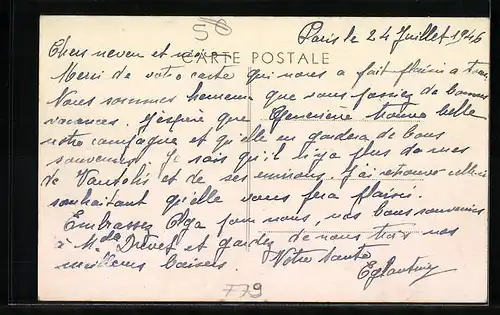 58
Paris le 24 Juillet 1946
Chers neveu et
CARTE POSTALE
Merci de votre carte qui nous a fait plaisir a tous
Nous sommes heureux que vous passiez de bonnes
vacances. J'espère que Geneviève trouve belle
notre campagne et qu'elle en gardera de bons
souvenirs. Je sais qu'il n'y a plus de vues
de et de ses environs. J'ai retrouvé celle-ci
souhaitant qu'elle vous fera plaisir.
Embrassez Olga pour nous, nos bons souvenirs
à M. et gardez de nous trois nos
meilleurs baisers. Votre tante
Eglantine
F79